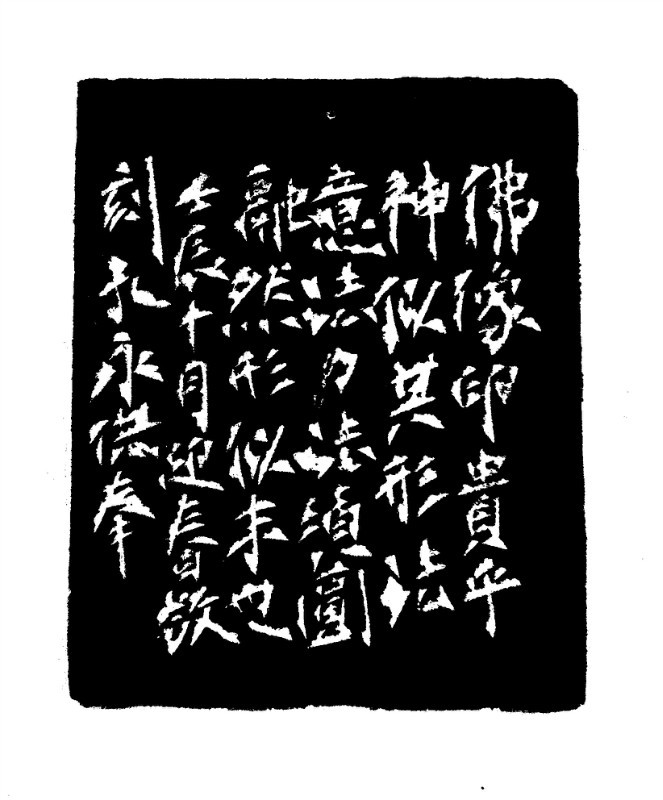 佛像印貴乎
神似其形法
意法刀法須圓
融然形似末也
壬辰十月迎春敬
刻永供奉